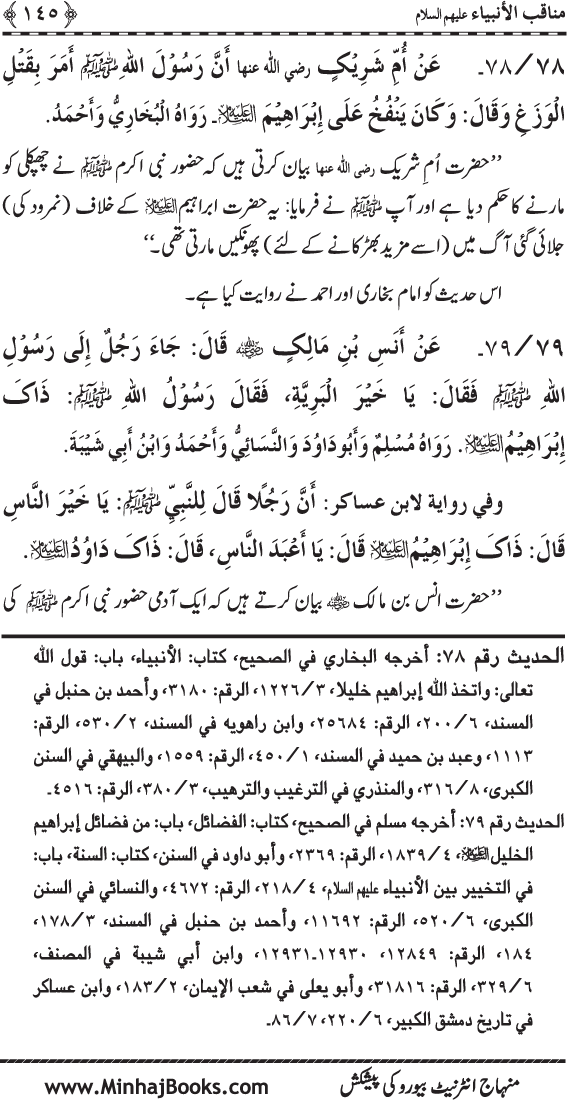 مناقب الأنبياء عليهم السلام ﴿١٤٥﴾
٧٨/٧٨۔ عَنْ أُمِّ شَرِيْكٍ رضي الله عنها أَنَّ رَسُوْلَ اللهِ ﷺ أَمَرَ بِقَتْلِ
الْوَزَغِ وَقَالَ: وَكَانَ يَنْفُخُ عَلَى إِبْرَاهِيْمَ عليه السلام۔ رَوَاهُ الْبُخَارِيُّ وَأَحْمَدُ.
’’حضرت اُم شریک رضی الله عنها بیان کرتی ہیں کہ حضور نبی اکرم ﷺ نے چھپکلی کو
مارنے کا حکم دیا ہے اور آپ ﷺ نے فرمایا: یہ حضرت ابراہیم علیہ السلام کے خلاف (نمرود کی)
جلائی گئی آگ میں (اسے مزید بھڑکانے کے لئے) پھونکیں مارتی تھی۔‘‘
اس حدیث کو امام بخاری اور احمد نے روایت کیا ہے۔
٧٩/٧٩۔ عَنْ أَنَسِ بْنِ مَالِكٍ رضي الله عنه قَالَ: جَاءَ رَجُلٌ إِلَى رَسُوْلِ
اللهِ ﷺ فَقَالَ: يَا خَيْرَ الْبَرِيَّةِ، فَقَالَ رَسُوْلُ اللهِ ﷺ: ذَاكَ
إِبْرَاهِيْمُ عليه السلام. رَوَاهُ مُسْلِمٌ وَأَبُودَاوُدَ وَالنَّسَائِيُّ وَأَحْمَدُ وَابْنُ أَبِي شَيْبَةَ.
وفي رواية لابن عساكر: أَنَّ رَجُلًا قَالَ لِلنَّبِيِّ ﷺ: يَا خَيْرَ النَّاسِ
قَالَ: ذَاكَ إِبْرَاهِيْمُ عليه السلام قَالَ: يَا أَعْبَدَ النَّاسِ، قَالَ: ذَاكَ دَاوُدُ عليه السلام.
’’حضرت انس بن مالک رضی الله عنه بیان کرتے ہیں کہ ایک آدمی حضور نبی اکرم ﷺ کی
الحديث رقم ٧٨: أخرجه البخاري في الصحيح، كتاب: الأنبياء، باب: قول الله
تعالى: واتخذ الله إبراهيم خليلا، ٣/١٢٢٦، الرقم: ٣١٨٠، وأحمد بن حنبل في
المسند، ٦/٢٠٠، الرقم: ٢٥٦٨٤، وابن راهويه في المسند، ٢/٥٣٠، الرقم:
١١١٣، وعبد بن حميد في المسند، ١/٤٥٠، الرقم: ١٥٥٩، والبيهقي في السنن
الكبرى، ٨/٣١٦، والمنذري في الترغيب والترهيب، ٣/٣٨٠، الرقم: ٤٥١٦۔
الحديث رقم ٧٩: أخرجه مسلم في الصحيح، كتاب: الفضائل، باب: من فضائل إبراهيم
الخليل عليه السلام، ٤/١٨٣٩، الرقم: ٢٣٦٩، وأبو داود في السنن، كتاب: السنة، باب:
في التخيير بين الأنبياء عليهم السلام، ٤/٢١٨، الرقم: ٤٦٧٢، والنسائي في السنن
الكبرى، ٦/٥٢٠، الرقم: ١١٦٩٢، وأحمد بن حنبل في المسند، ٣/١٧٨،
١٨٤، الرقم: ١٢٨٤٩، ١٢٩٣٠۔١٢٩٣١، وابن أبي شيبة في المصنف،
٦/٣٢٩، الرقم: ٣١٨١٦، وأبو يعلى في شعب الإيمان، ٢/١٨٣، وابن عساكر
في تاريخ دمشق الكبير، ٦/٢٢٠، ٧/٨٦۔
منہاج انٹرنیٹ بیورو کی پیشکش www.MinhajBooks.com